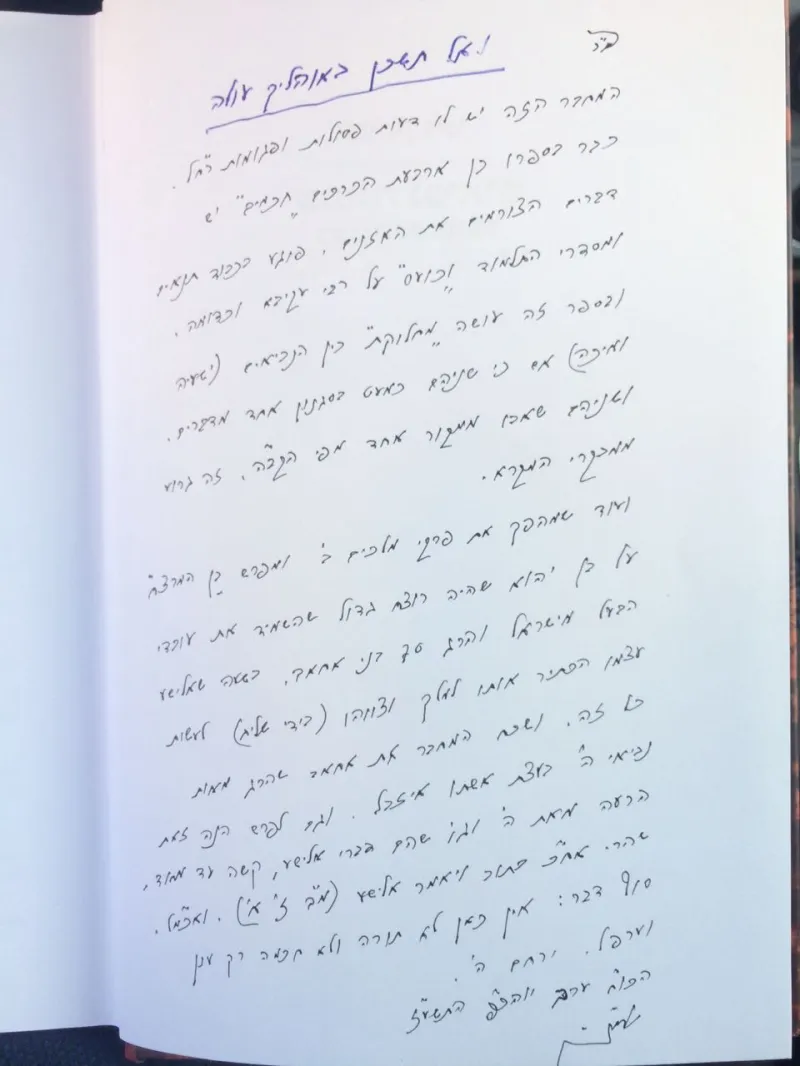 ואל תשכן באוהליך עולה
המחבר הזה יש לו דעות פסולות ופגומות ר"ל.
כבר בספרו בן ארבעת הכרכים "חכמים" יש
דברים הצורמים את האזנים. פוגע בכבוד תנאים
ומסדרי התלמוד "וכועס" על רבי עקיבא וכדומה.
ובספר זה עושה "מחלוקת" בין הנביאים (ישעיה
ומיכה) אם כי שניהם כמעט בסגנון אחד מדברים.
ושניהם שאבו ממקור אחד מפי הקב"ה. זה גרוע
ממבקרי המקרא.
ועוד שמהפך את פרקי מלכים ב' ומפרש בן המרצח
על בן יהוא שהיה רוצח גדול שהשמיד את עובדי
הבעל מישראל והרג את בני אחאב. בשעה שאלישע
עצמו הכתיר אותו למלך וצווהו (בידי שליח) לעשות
כל זה. ושכח המחבר את אחאב שהרג מאות
נביאי ה' בעצת אשתו איזבל. וגם לפרש הנה זאת
הרעה מאת ה' וגו' שהם דברי אלישע, קשה עד מאוד,
שהרי אח"כ כתוב ויאמר אלישע (מ"ב ז' א'). ואכמ"ל.
סוף דבר: אין כאן לא תורה ולא חכמה רק ענן
וערפל. ירחם ה'.
הכו"ח ערב יוהכ"פ התשע"ג